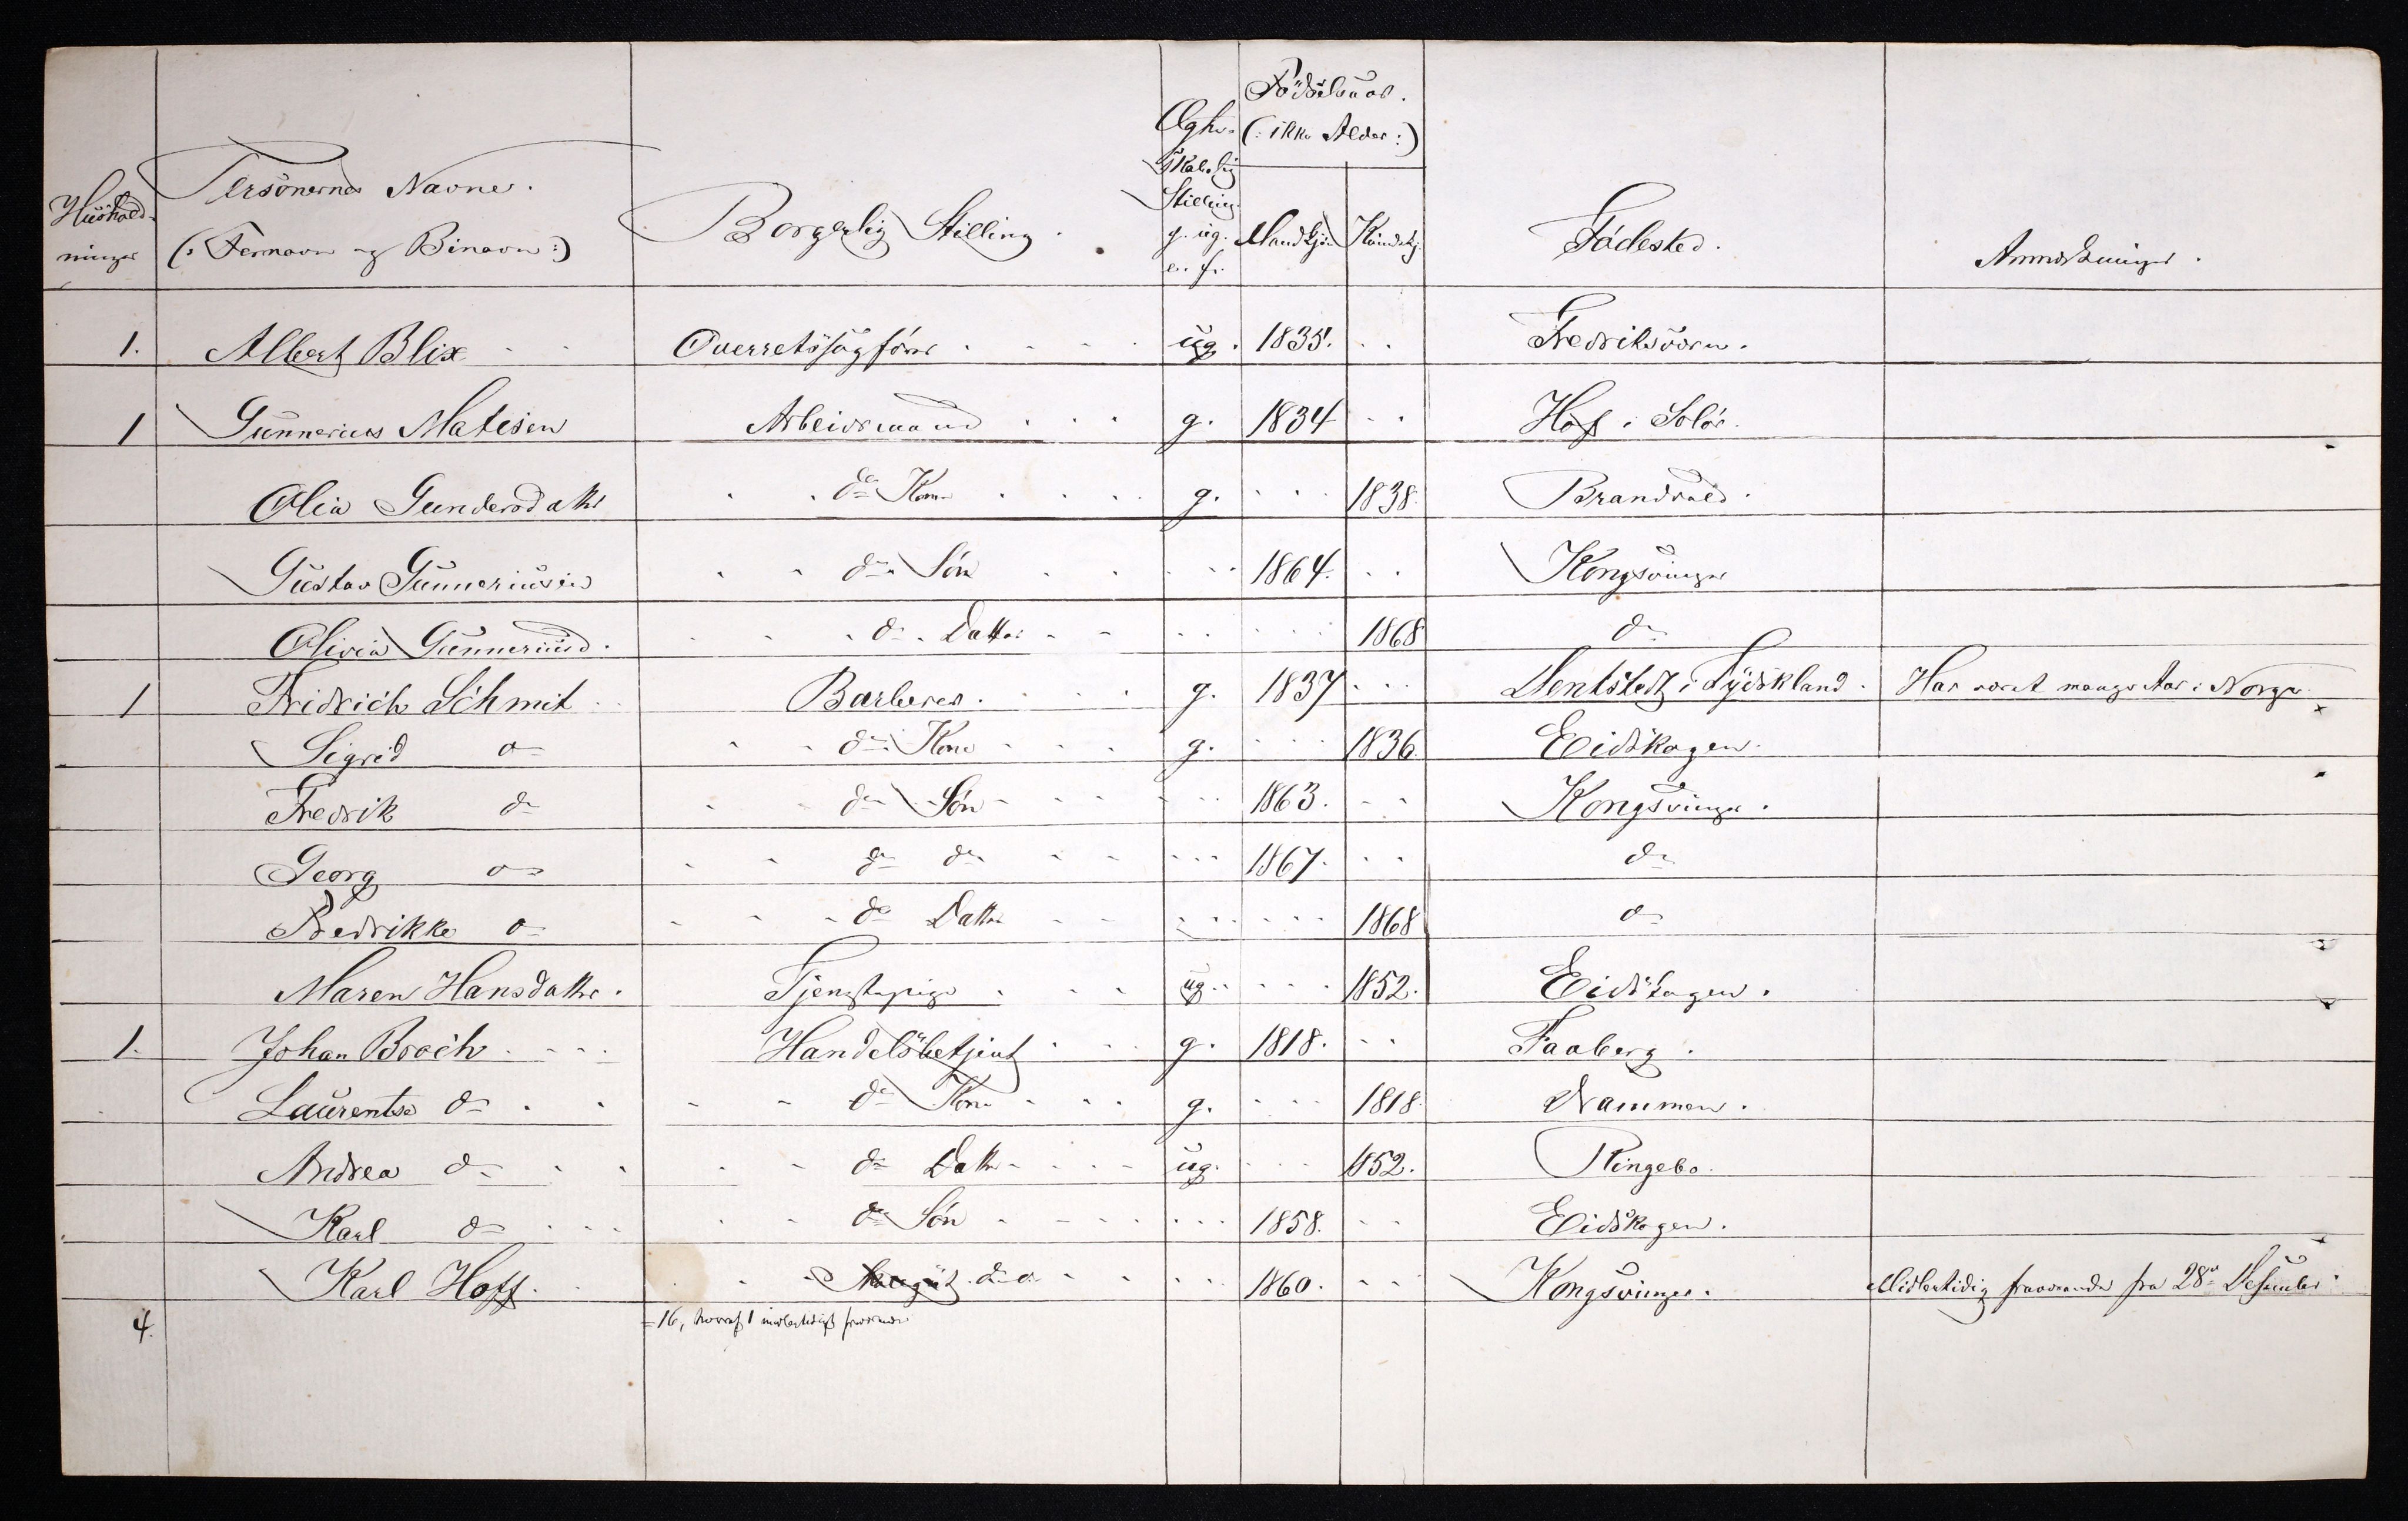 Hushold- ninger | Personernes Navne. (: Fornavn og Binavn:) | Borgerlig Stilling. | Ægte- skabelig Stilling. g. ug. e. f. | Födselsaar. (: ikke Alder:) Mandkjön Kvindekj. | Födested. | Anmærkninger.
1. Albert Blix Overretssagförer ug. 1835. Fredriksværn.
1 Gunnerius Matisen Arbeidsmand g. 1834 Hof i Solör.
Olia Gundersdatter ds Kone g. 1838. Brandvold.
Gustav Gunneriusen ds Sön 1864. Kongsvinger
Olivia Gunneriusd. ds Datter 1868 do
1 Fridrich Schmit Barberer. g. 1837 i Tydskland. Har været mange Aar i Norge.
Sigrid do ds Kone g. 1836. Eidskogen.
Fredrik do ds Sön 1863. Kongsvinger.
Georg do ds do 1867. do
Fredrikke do ds Datter 1868 do
Maren Hansdatter. Tjenestepige ug. 1852. Eidskogen.
1. Johan Broch Handelsbetjent g. 1818. Faaberg.
Laurentse do ds Kone g. 1818. Drammen.
Andrea do ds Datter ug. 1852. Ringebo.
Karl do ds Sön 1858. Eidskogen.
Karl Hoff. 1860. Kongsvinger. Midlertidig fraværende fra 28de Desember
4. = 16, hvoraf 1 midlertidigt fraværende